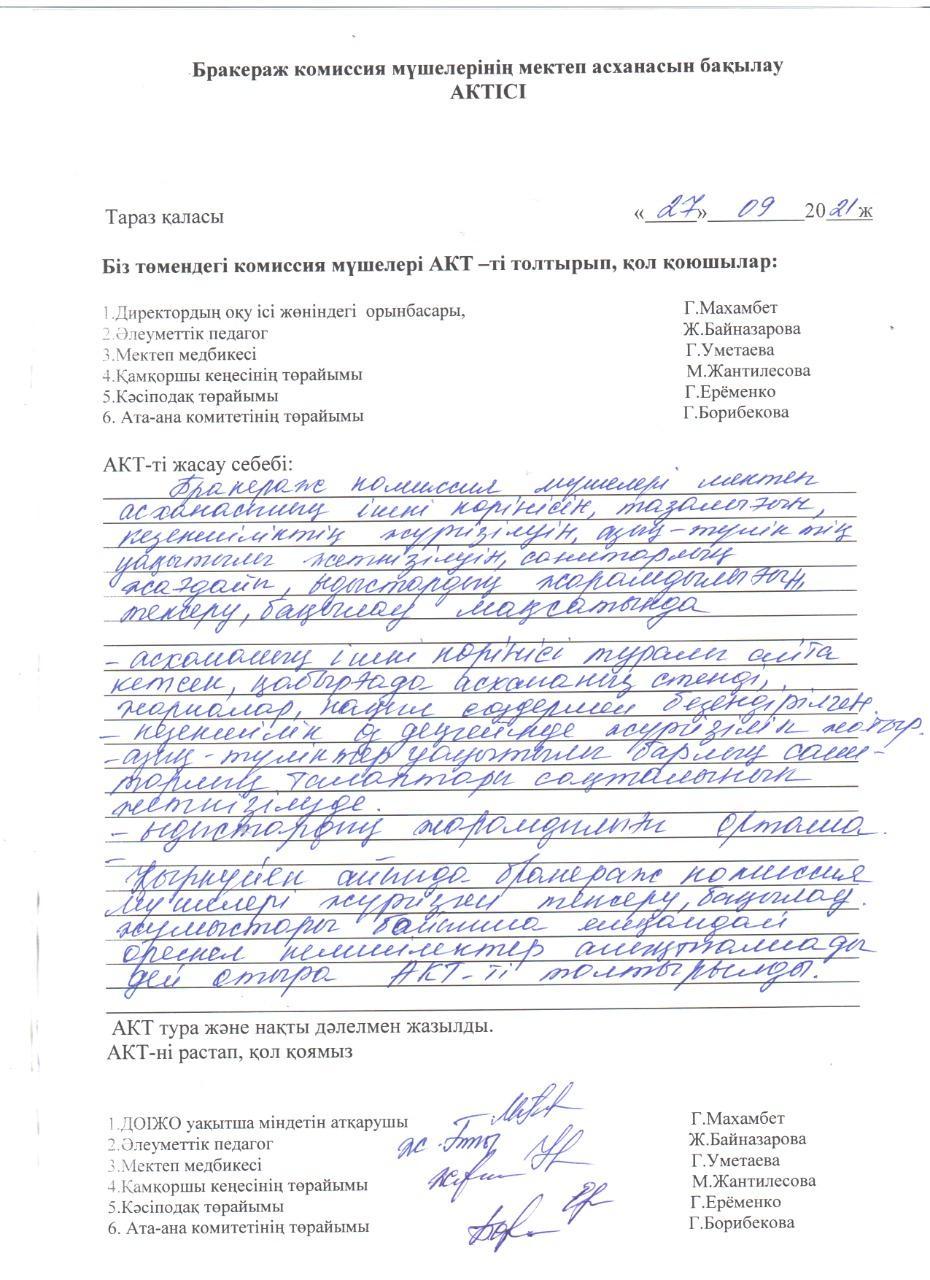 Бракераж комиссия мүшелерінің мектеп асханасын бақылау
АКТІСІ
Тараз қаласы «27» 09 2021 ж
Біз төмендегі комиссия мүшелері АКТ –ті толтырып, қол қоюшылар:
1.Директордың оқу ісі жөніндегі орынбасары, Г.Махамбет
2.Әлеуметтік педагог Ж.Байназарова
3.Мектеп медбикесі Г.Уметаева
4.Қамқоршы кеңесінің төрайымы М.Жантилесова
5.Кәсіподақ төрайымы Г.Ерёменко
6. Ата-ана комитетінің төрайымы Г.Борибекова
АКТ-ті жасау себебі:
Бракераж комиссия мүшелері мектеп
асханасының ішкі көрінісін, тазалығын,
кезекшіліктің жүргізілуін, азық-түліктің
уақытылы жеткізілуін, санитарлық
жағдайы, ыдыстардың жарамдылығын,
тексеру, бақылау мақсатында
- асхананың ішкі көрінісі туралы айта
кетсек, қабырғада асхананың стенді,
жарналар, нақыл сөздермен безендірілген.
- кезекшілік өз деңгейінде жүргізіліп жатыр.
- азық-түліктер уақытылы барлық сани-
тарлық талаптары сақталынып
жеткізілуде.
- ыдыстардың жарамдылығы орташа.
-
Қыркүйек айында бракераж комиссия
мүшелері жүргізген тексеру, бақылау
жұмыстары бойынша ешқандай
өрескел кемшіліктер анықталмады
дей отыра АКТ-ті толтырылды.
АКТ тура және нақты дәлелмен жазылды.
АКТ-ні растап, қол қоямыз
1.ДОІЖО уақытша міндетін атқарушы Г.Махамбет
2.Әлеуметтік педагог Ж.Байназарова
3.Мектеп медбикесі Г.Уметаева
4.Қамқоршы кеңесінің төрайымы М.Жантилесова
5.Кәсіподақ төрайымы Г.Ерёменко
6. Ата-ана комитетінің төрайымы Г.Борибекова